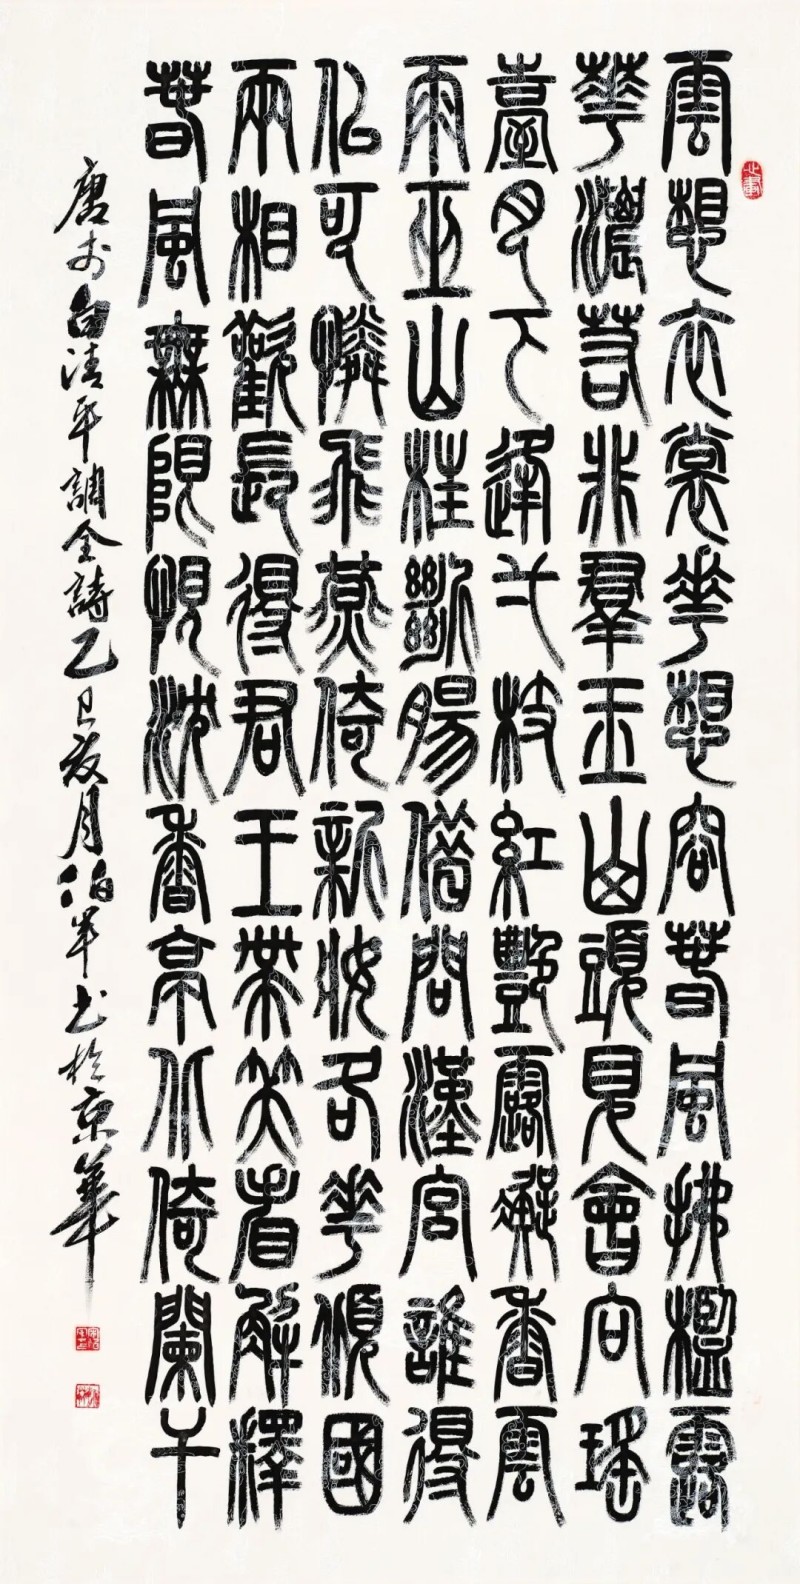 雲想衣裳華想容春風拂檻露
華濃若非羣玉山頭見會向瑤
臺月下逢弌枝紅豔露凝香雲
雨巫山枉斷腸借問漢宮誰得
似可憐飛燕倚新妝名華傾國
兩相歡長得君王帶笑看解釋
春風無限恨沈香亭北倚闌干
唐李白清平調全詩乙巳月伯书於京華